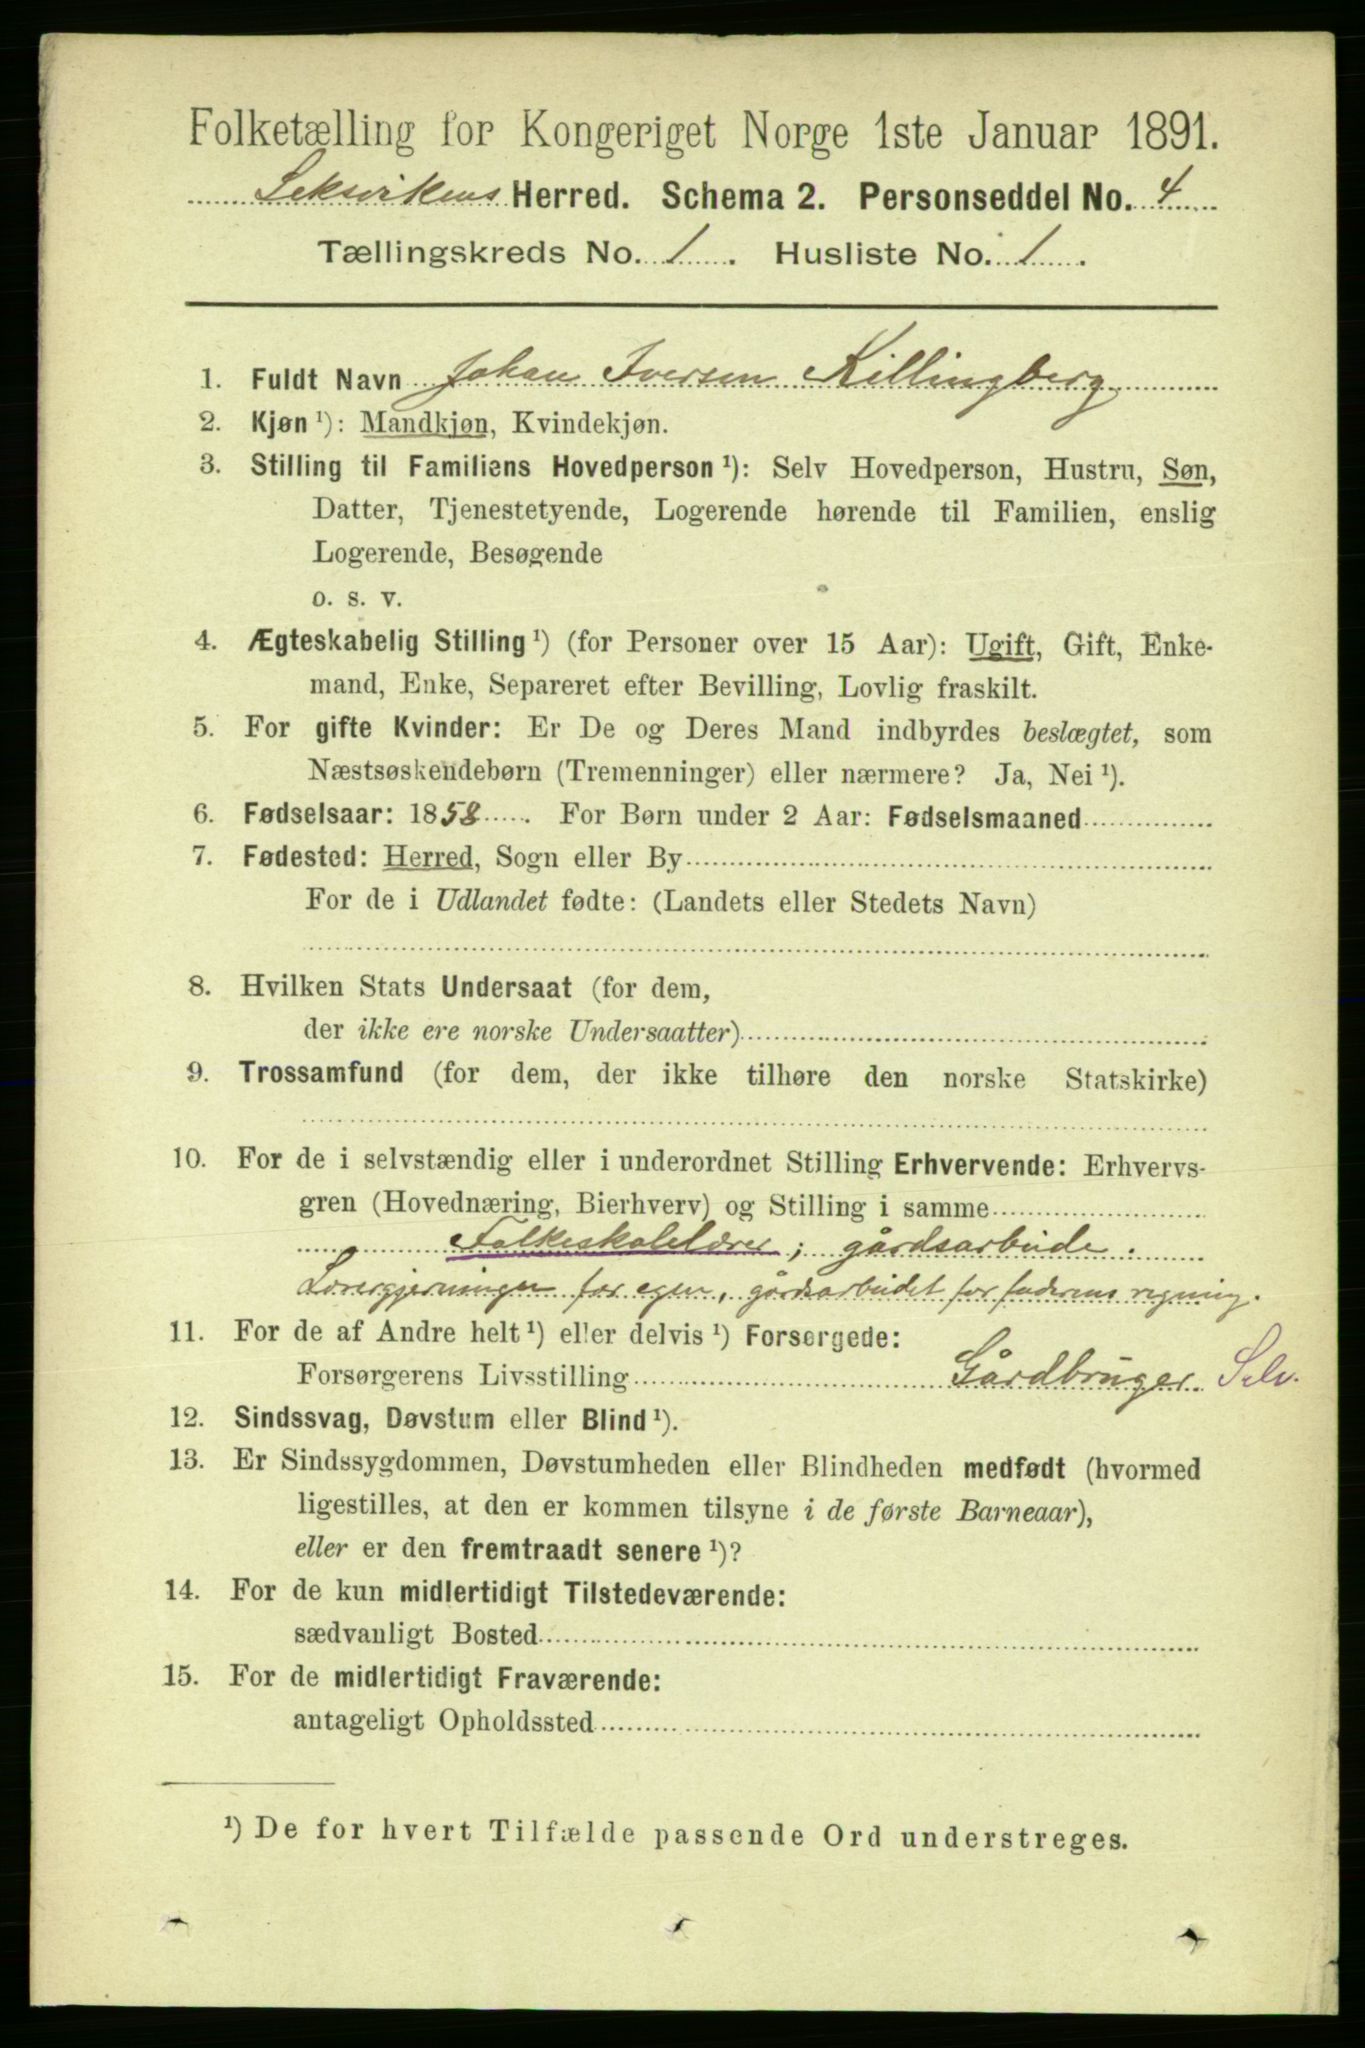 Folketælling for Kongeriget Norge 1ste Januar 1891.
Leksvikens Herred. Schema 2. Personseddel No. 4
Tællingskreds No. 1. Husliste No. 1.
1. Fuldt Navn Johan Iversen Killingberg
2. Kjøn ¹): Mandkjøn, Kvindekjøn.
3. Stilling til Familiens Hovedperson ¹): Selv Hovedperson, Hustru, Søn,
Datter, Tjenestetyende, Logerende hørende til Familien, enslig
Logerende, Besøgende
o. s. v.
4. Ægteskabelig Stilling ¹) (for Personer over 15 Aar): Ugift, Gift, Enke-
mand, Enke, Separeret efter Bevilling, Lovlig fraskilt.
5. For gifte Kvinder: Er De og Deres Mand indbyrdes beslægtet, som
Næstsøskendebørn (Tremenninger) eller nærmere? Ja, Nei ¹).
6. Fødselsaar: 1858. For Børn under 2 Aar: Fødselsmaaned
7. Fødested: Herred, Sogn eller By
For de i Udlandet fødte: (Landets eller Stedets Navn)
8. Hvilken Stats Undersaat (for dem,
der ikke ere norske Undersaatter)
9. Trossamfund (for dem, der ikke tilhøre den norske Statskirke)
10. For de i selvstændig eller i underordnet Stilling Erhvervende: Erhvervs-
gren (Hovednæring, Bierhverv) og Stilling i samme
Folkeskolelærer; gårdsarbeide.
Lærergjerningen for egen, gårdsarbeidet for faderens regning.
11. For de af Andre helt ¹) eller delvis ¹) Forsørgede:
Forsørgerens Livsstilling Gårdbruger. Selv.
12. Sindssvag, Døvstum eller Blind ¹).
13. Er Sindssygdommen, Døvstumheden eller Blindheden medfødt (hvormed
ligestilles, at den er kommen tilsyne i de første Barneaar),
eller er den fremtraadt senere ¹)?
14. For de kun midlertidigt Tilstedeværende:
sædvanligt Bosted
15. For de midlertidigt Fraværende:
antageligt Opholdssted
¹) De for hvert Tilfælde passende Ord understreges.